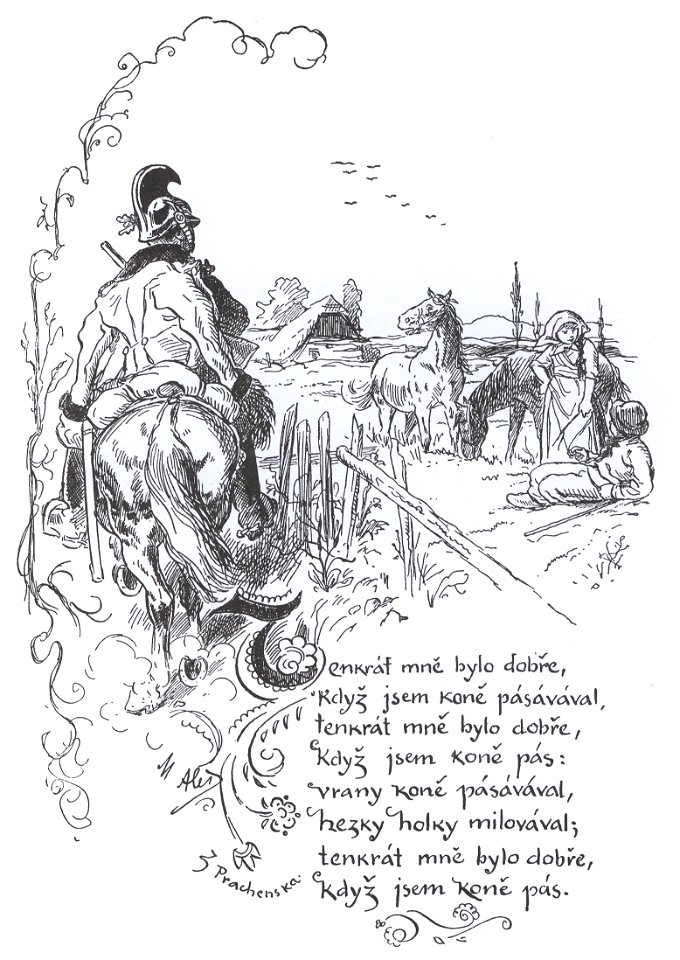 Tenkrát mně bylo dobře,
když jsem koně pásávával,
tenkrát mně bylo dobře,
když jsem koně pás:
vrany koně pásávával,
hezky holky milovával;
tenkrát mně bylo dobře,
když jsem koně pás.
M Aleš
Z Prachenska.